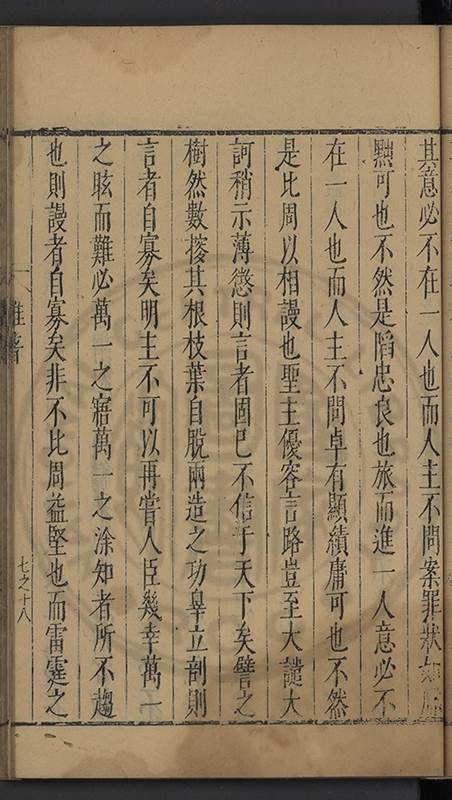 其意必不在一人也而人主不問案罪狀如
黥可也不然是陷忠良也旅而進一人意必不
在一人也而人主不問卓有顯績庸可也不然
是比周以相謾也聖主優客言路豈至大譴大
訶稍示薄懲則言者固已不信于天下矣譬之
樹然數搖其根枝葉自脫兩造之功辠立剖則
言者自寡矣明主不可以再嘗人臣幾幸萬一
之眩而難必萬一之寤萬一之涂知者所不趨
也則謾者自寡矣非不比周益堅也而雷霆之
雜著
七之十八